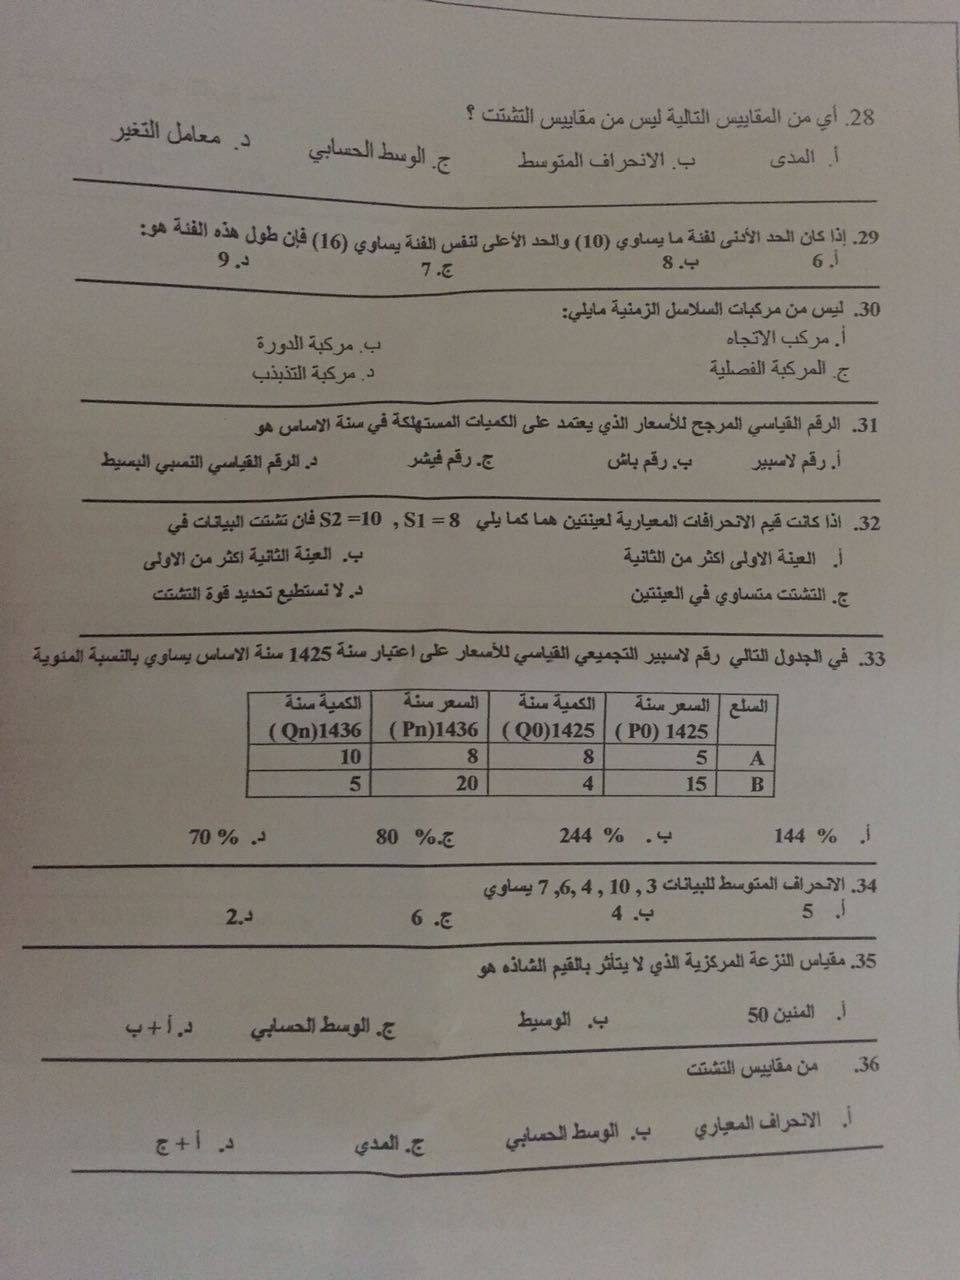 28. أي من المقاييس التالية ليس من مقاييس التشتت ؟
أ. المدى ب. الانحراف المتوسط ج. الوسط الحسابي د. معامل التغير
29. إذا كان الحد الأدنى لفئة ما يساوي (10) والحد الأعلى لنفس الفئة يساوي (16) فإن طول هذه الفئة هو:
أ. 6 ب. 8 ج. 7 د. 9
30. ليس من مركبات السلاسل الزمنية مايلي:
أ. مركب الاتجاه ب. مركبة الدورة
ج. المركبة الفصلية د. مركبة التذبذب
31. الرقم القياسي المرجح للأسعار الذي يعتمد على الكميات المستهلكة في سنة الاساس هو
أ. رقم لاسبير ب. رقم باش ج. رقم فيشر د. الرقم القياسي النسبي البسيط
32. اذا كانت قيم الانحرافات المعيارية لعينتين هما كما يلي S1 = 8 , S2 =10 فان تشتت البيانات في
أ. العينة الاولى اكثر من الثانية ب. العينة الثانية اكثر من الاولى
ج. التشتت متساوي في العينتين د. لا نستطيع تحديد قوة التشتت
33. في الجدول التالي رقم لاسبير التجميعي القياسي للأسعار على اعتبار سنة 1425 سنة الاساس يساوي بالنسبة المئوية
السلع السعر سنة الكمية سنة السعر سنة الكمية سنة
1425 (P0) 1425(Q0) 1436(Pn) 1436(Qn)
A 5 8 8 10
B 15 4 20 5
أ. 144 % ب. 244 % ج. 80 % د. 70 %
34. الانحراف المتوسط للبيانات 3 , 10 , 4 ,6, 7 يساوي
أ. 5 ب. 4 ج. 6 د. 2
35. مقياس النزعة المركزية الذي لا يتأثر بالقيم الشاذه هو
أ. المئين 50 ب. الوسيط ج. الوسط الحسابي د. أ + ب
36. من مقاييس التشتت
أ. الانحراف المعياري ب. الوسط الحسابي ج. المدي د. أ + ج